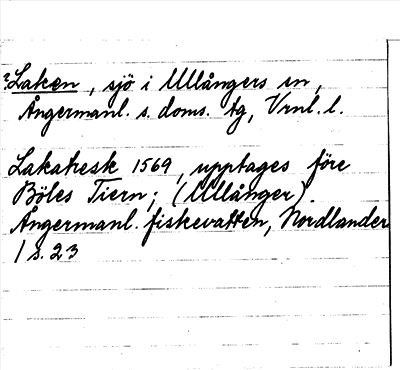 ?Laken, sjö i Ullångers sn,
Ångermanl. s. doms. tg, Vrnl. l.
Lakatresk 1569, upptages före
Böles Tiern; (Ullånger).
Ångermanl. fiskevatten, Nordlander
1 s. 23